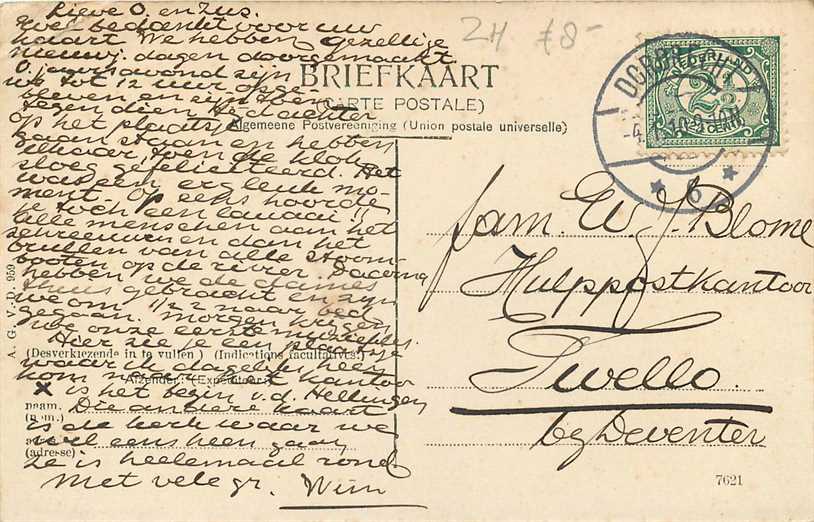 Lieve O. en zus.
Wel bedankt voor uw
kaart We hebben gezellige
nieuwj. dagen doorgemaakt
O. jaarsavond zijn
we tot 12 uur opge-
bleven en zijn
tegen dien tijd achter
op het plaatsje
gaan staan en hebben
elkaar, toen de klok
sloeg gefeliciteerd. Het
was een erg leuk mo-
ment. Op eens hoorde
je toch een lawaai!!
alle menschen aan het
schreeuwen en dan het
brullen van alle stoom-
booten op de rivier. Daarna
hebben we de dames
thuis gebracht en zijn
we om 1½ 2 naar bed
gegaan. Morgen krijgen
we onze eerste muziekles.
Hier zie je een plaatsje
waar ik dagelijks heen
kom naar het kantoor
x is het begin v.d. Hellingen
Die andere kaart
is de kerk waar we
wel eens heen gaan
ze is heelemaal rond.
Met vele gr. Wim
24 £8-
BRIEFKAART
(CARTE POSTALE)
Algemeene Postvereeniging (Union postale universelle)
NEDERLAND
2½
CENT
DORDRECHT
-4. 1. 10. 9-10N.
* 6 *
fam. W. J. Blome
Hulppostkantoor
Twello.
bij Deventer
A. G. V. D. 959
(Desverkiezende in te vullen) (Indications facultatives)
Afzender: (Expéditeur)
naam.
(nom.)
(adresse)
7621